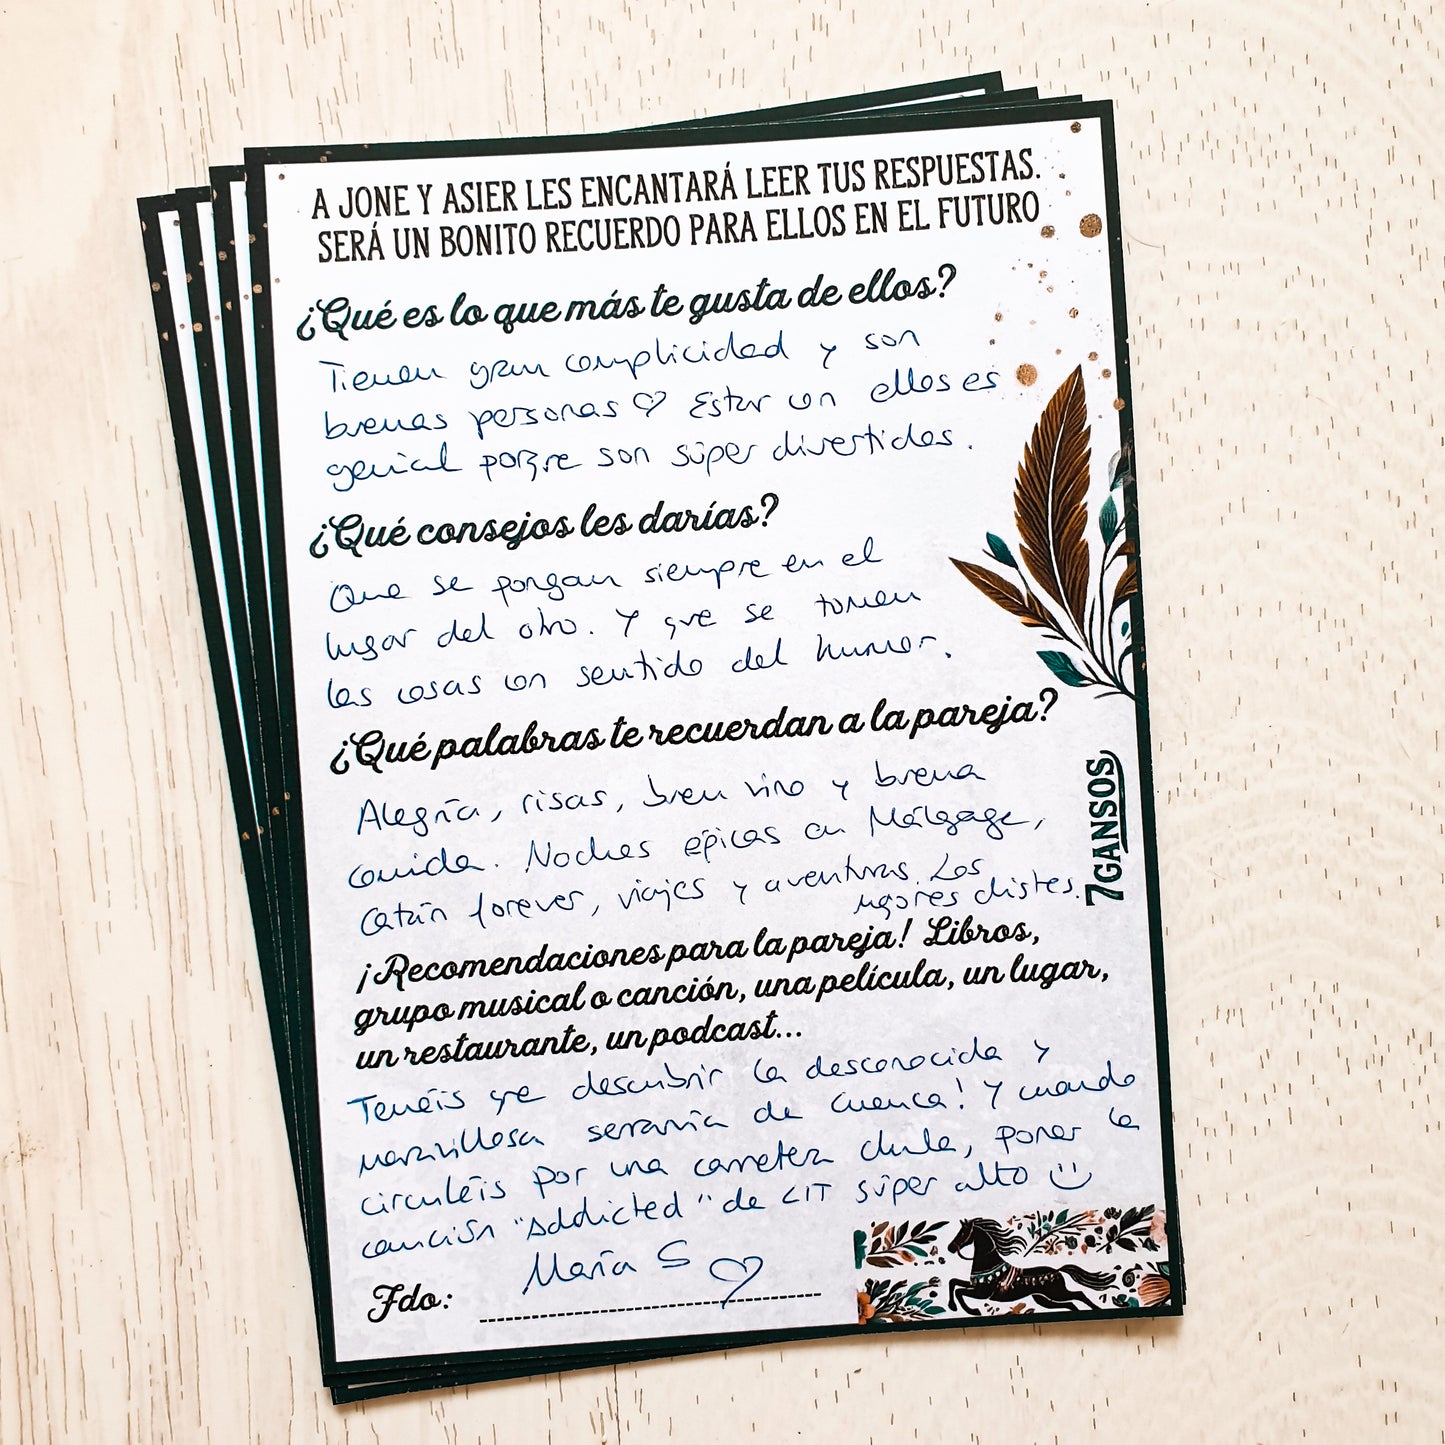 A JONE Y ASIER LES ENCANTARÁ LEER TUS RESPUESTAS.
SERÁ UN BONITO RECUERDO PARA ELLOS EN EL FUTURO
¿Qué es lo que más te gusta de ellos?
Tienen gran complicidad y son
buenas personas ♡ Estar con ellos es
genial porque son súper divertidos.
¿Qué consejos les darías?
Que se pongan siempre en el
lugar del otro. Y que se tomen
las cosas con sentido del humor.
¿Qué palabras te recuerdan a la pareja?
Alegría, risas, buen vino y buena
comida. Noches épicas en Málgage,
Catán forever, viajes y aventuras. Los
mejores chistes.
7GANSOS
¡Recomendaciones para la pareja! Libros,
grupo musical o canción, una película, un lugar,
un restaurante, un podcast...
Tenéis que descubrir la desconocida y
maravillosa serranía de Cuenca! Y cuando
circuléis por una carretera chula, poner la
canción "Addicted" de LIT súper alto
María S ♡
Fdo: